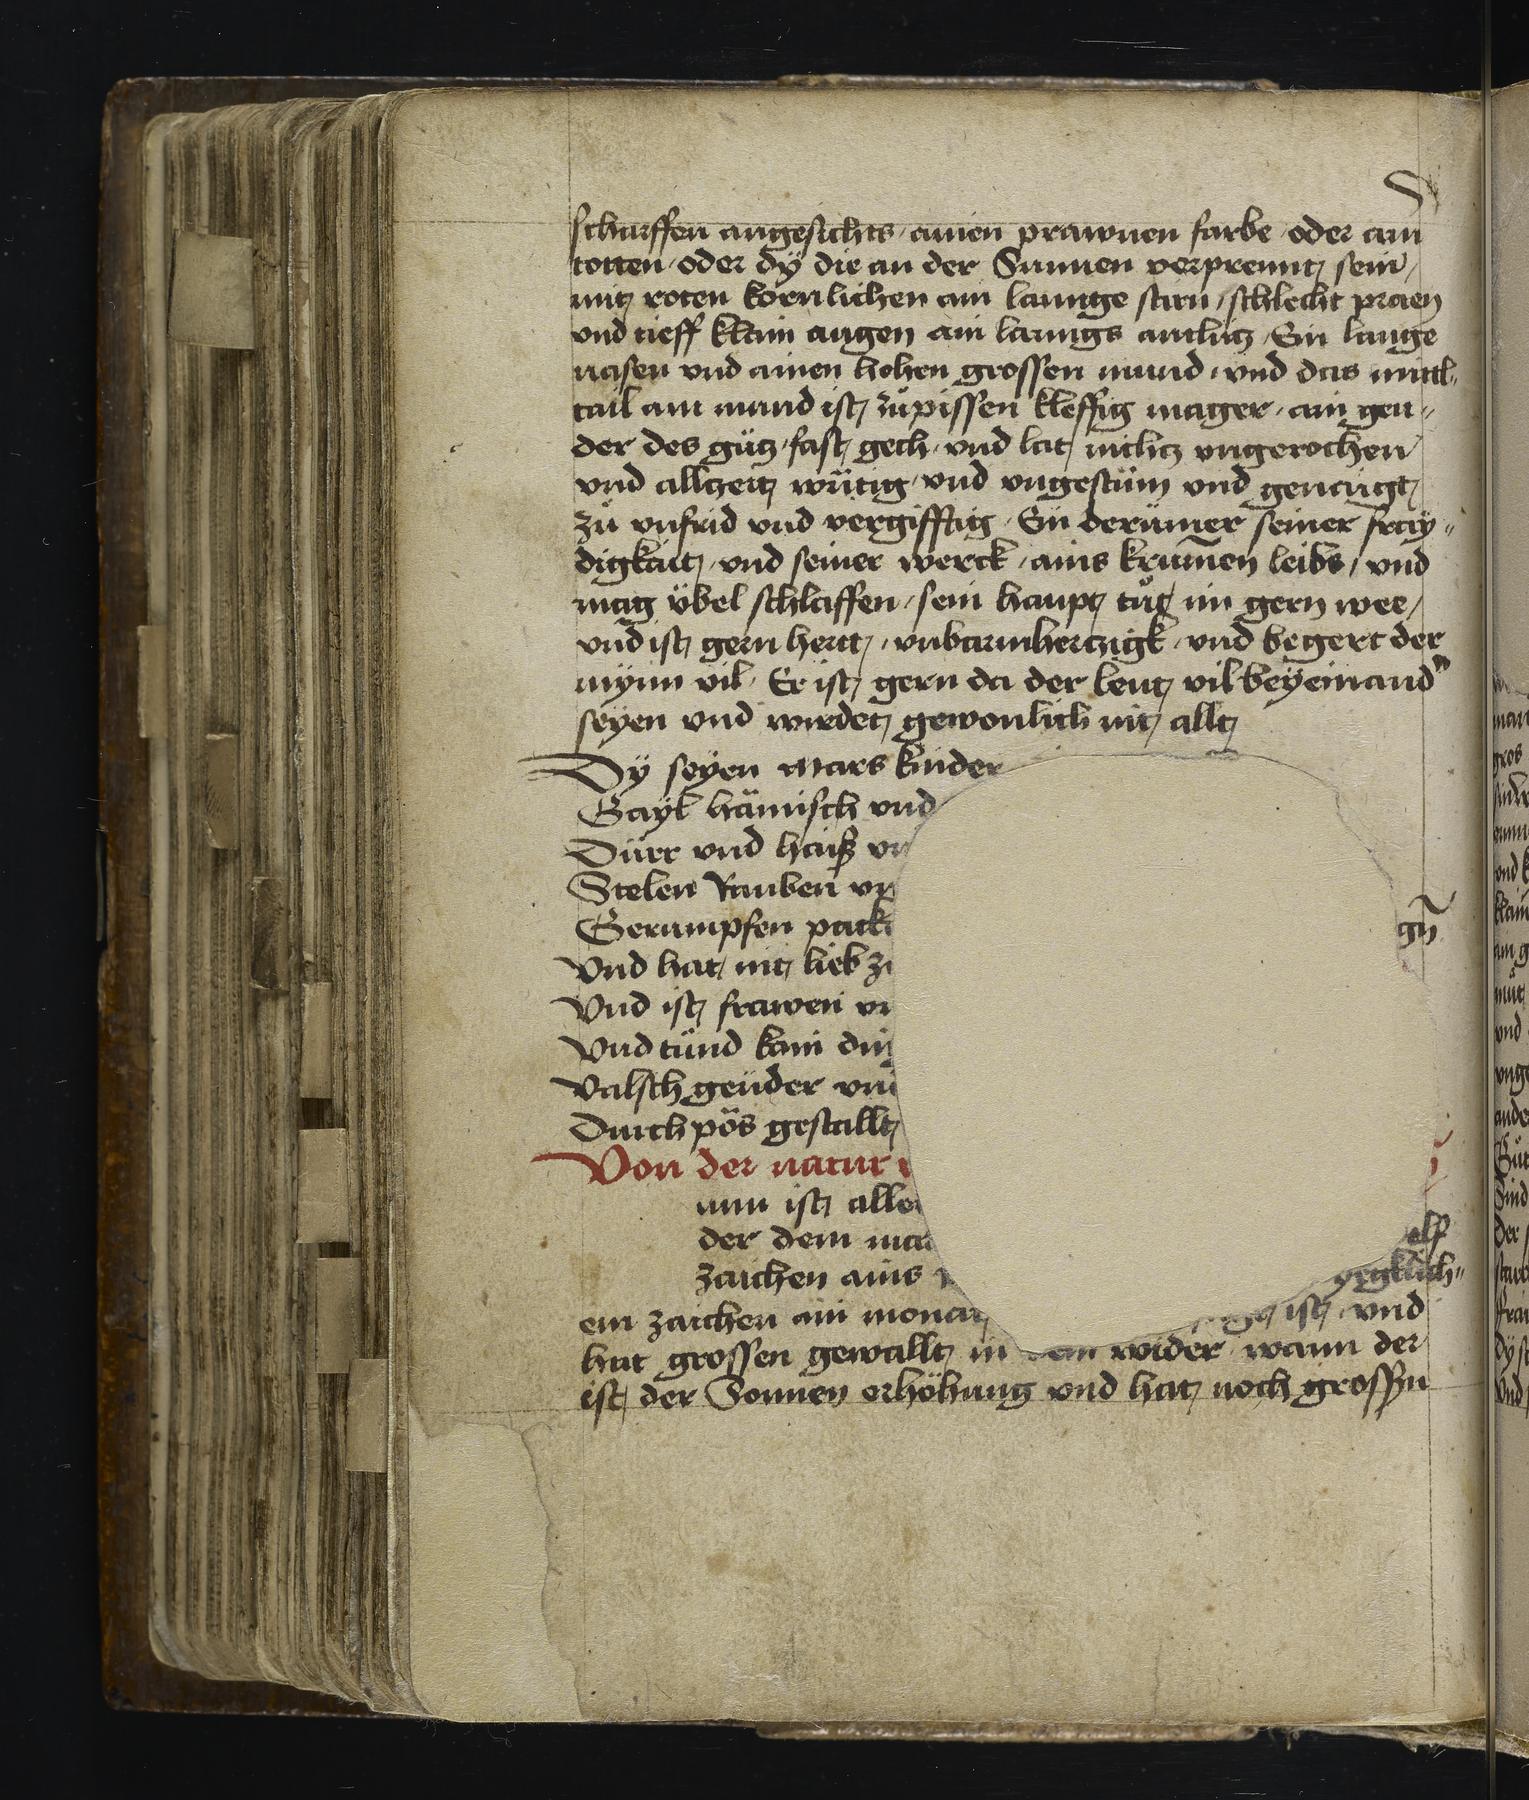 scharffen angesichts ainen prawnen farbe oder ain
totten oder dÿ die an der Sunnen verprennt sein
mit roten kornlichen ain lannge stirn schlecht praen
vnd tieff klain augen ain lanngs antlitz Ein lange
nasen vnd ainen hohen grossen mund vnd das mittl
tail am mund ist zůpissen kleffig mager ain geu„
der des gütz fast gech vnd lat nichtz vngerochen
vnd allczeit wütig vnd vngestüm vnd genaigt
zů vnfrid vnd vergifftig Ein berümer seiner fraÿ„
digkait vnd seiner werck ains krum̄en leibs vnd
mag übel schlaffen sein haupt tůt im gern wee
vnd ist gern hertt vnbarmhertzigk vnd begert der
mynn vil Er ist gern da der leut vil beÿeinand
seÿen vnd wirdet gewonlich nit allt
Dÿ seÿen Mars kinder
Gaÿl hämisch vnd
Dürr vnd haiß vn
Stelen Rauben vn
Gerumpfen pack
Vnd hat nit lieb z
Vnd ist frawen v
Vnd tünd kain din
Valsch geüder vn
Durch pös gestallt
Von der natur
nun ist alle
der dem ma
elf
zaichen ains
ein zaichen ain monat ist vnd
hat grossen gewallt in dem wider wann der
ist der Sonnen erhöhung vnd hat noch grossñ